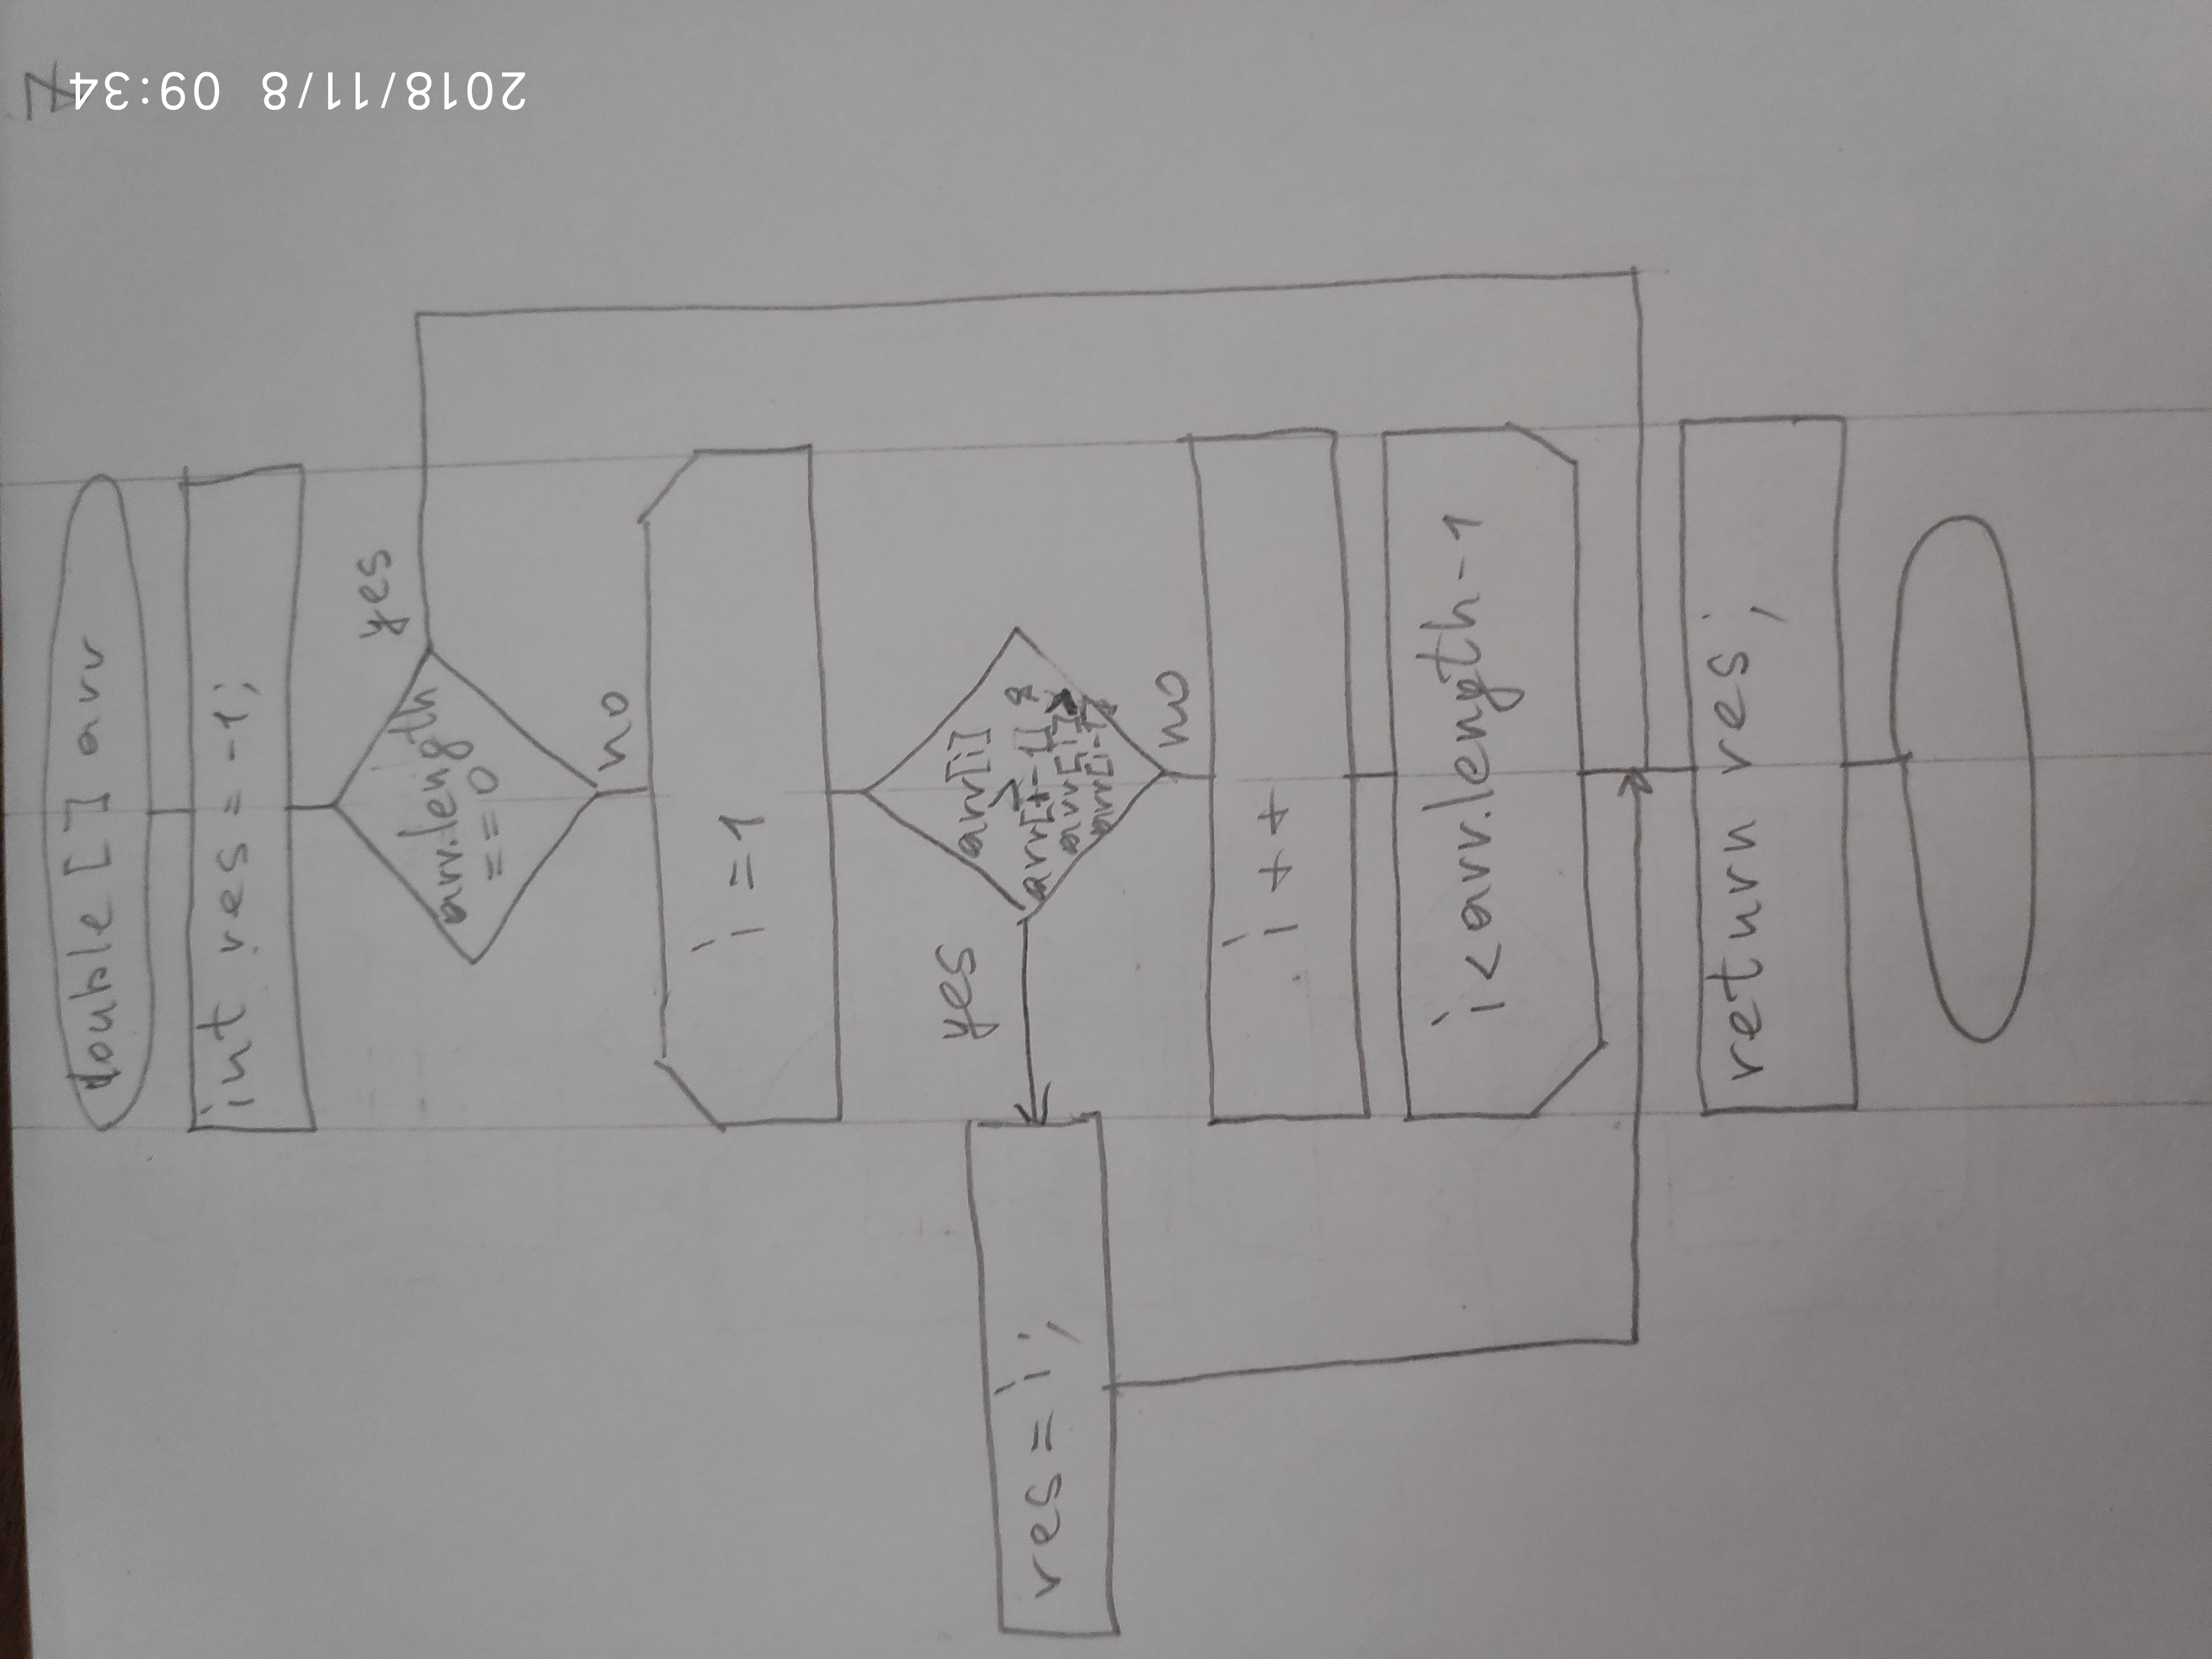 7
2018/11/8 09:34
double [] arr
int res = -1;
arr.length
== 0
yes
no
i = 1
arr[i]
>
arr[i-1] &
arr[i] >
arr[i-1]
yes
res = i;
no
i ++
i < arr.length - 1
return res;